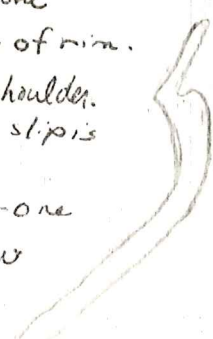 one
of rim.
houlder.
slip is
-one
w